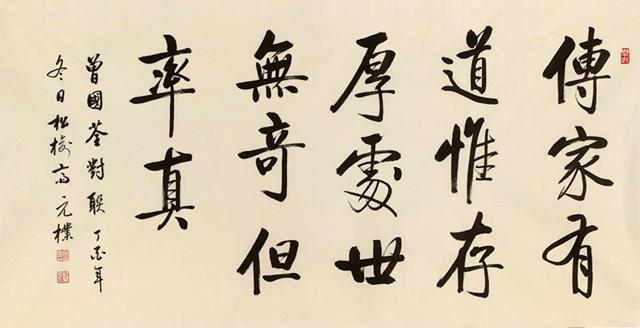 傳家有
道惟存
厚處世
無奇但
率真
曾國荃對聯丁酉年
冬日松梅高元樸